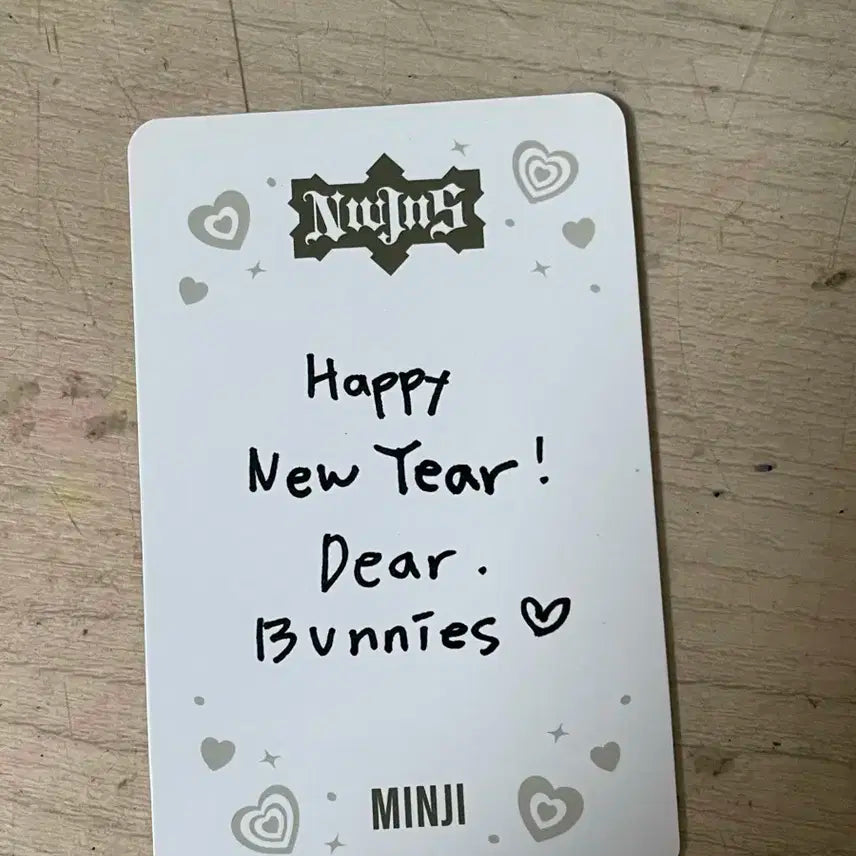 NwJnS
Happy
New Year!
Dear.
Bunnies♡
MINJI